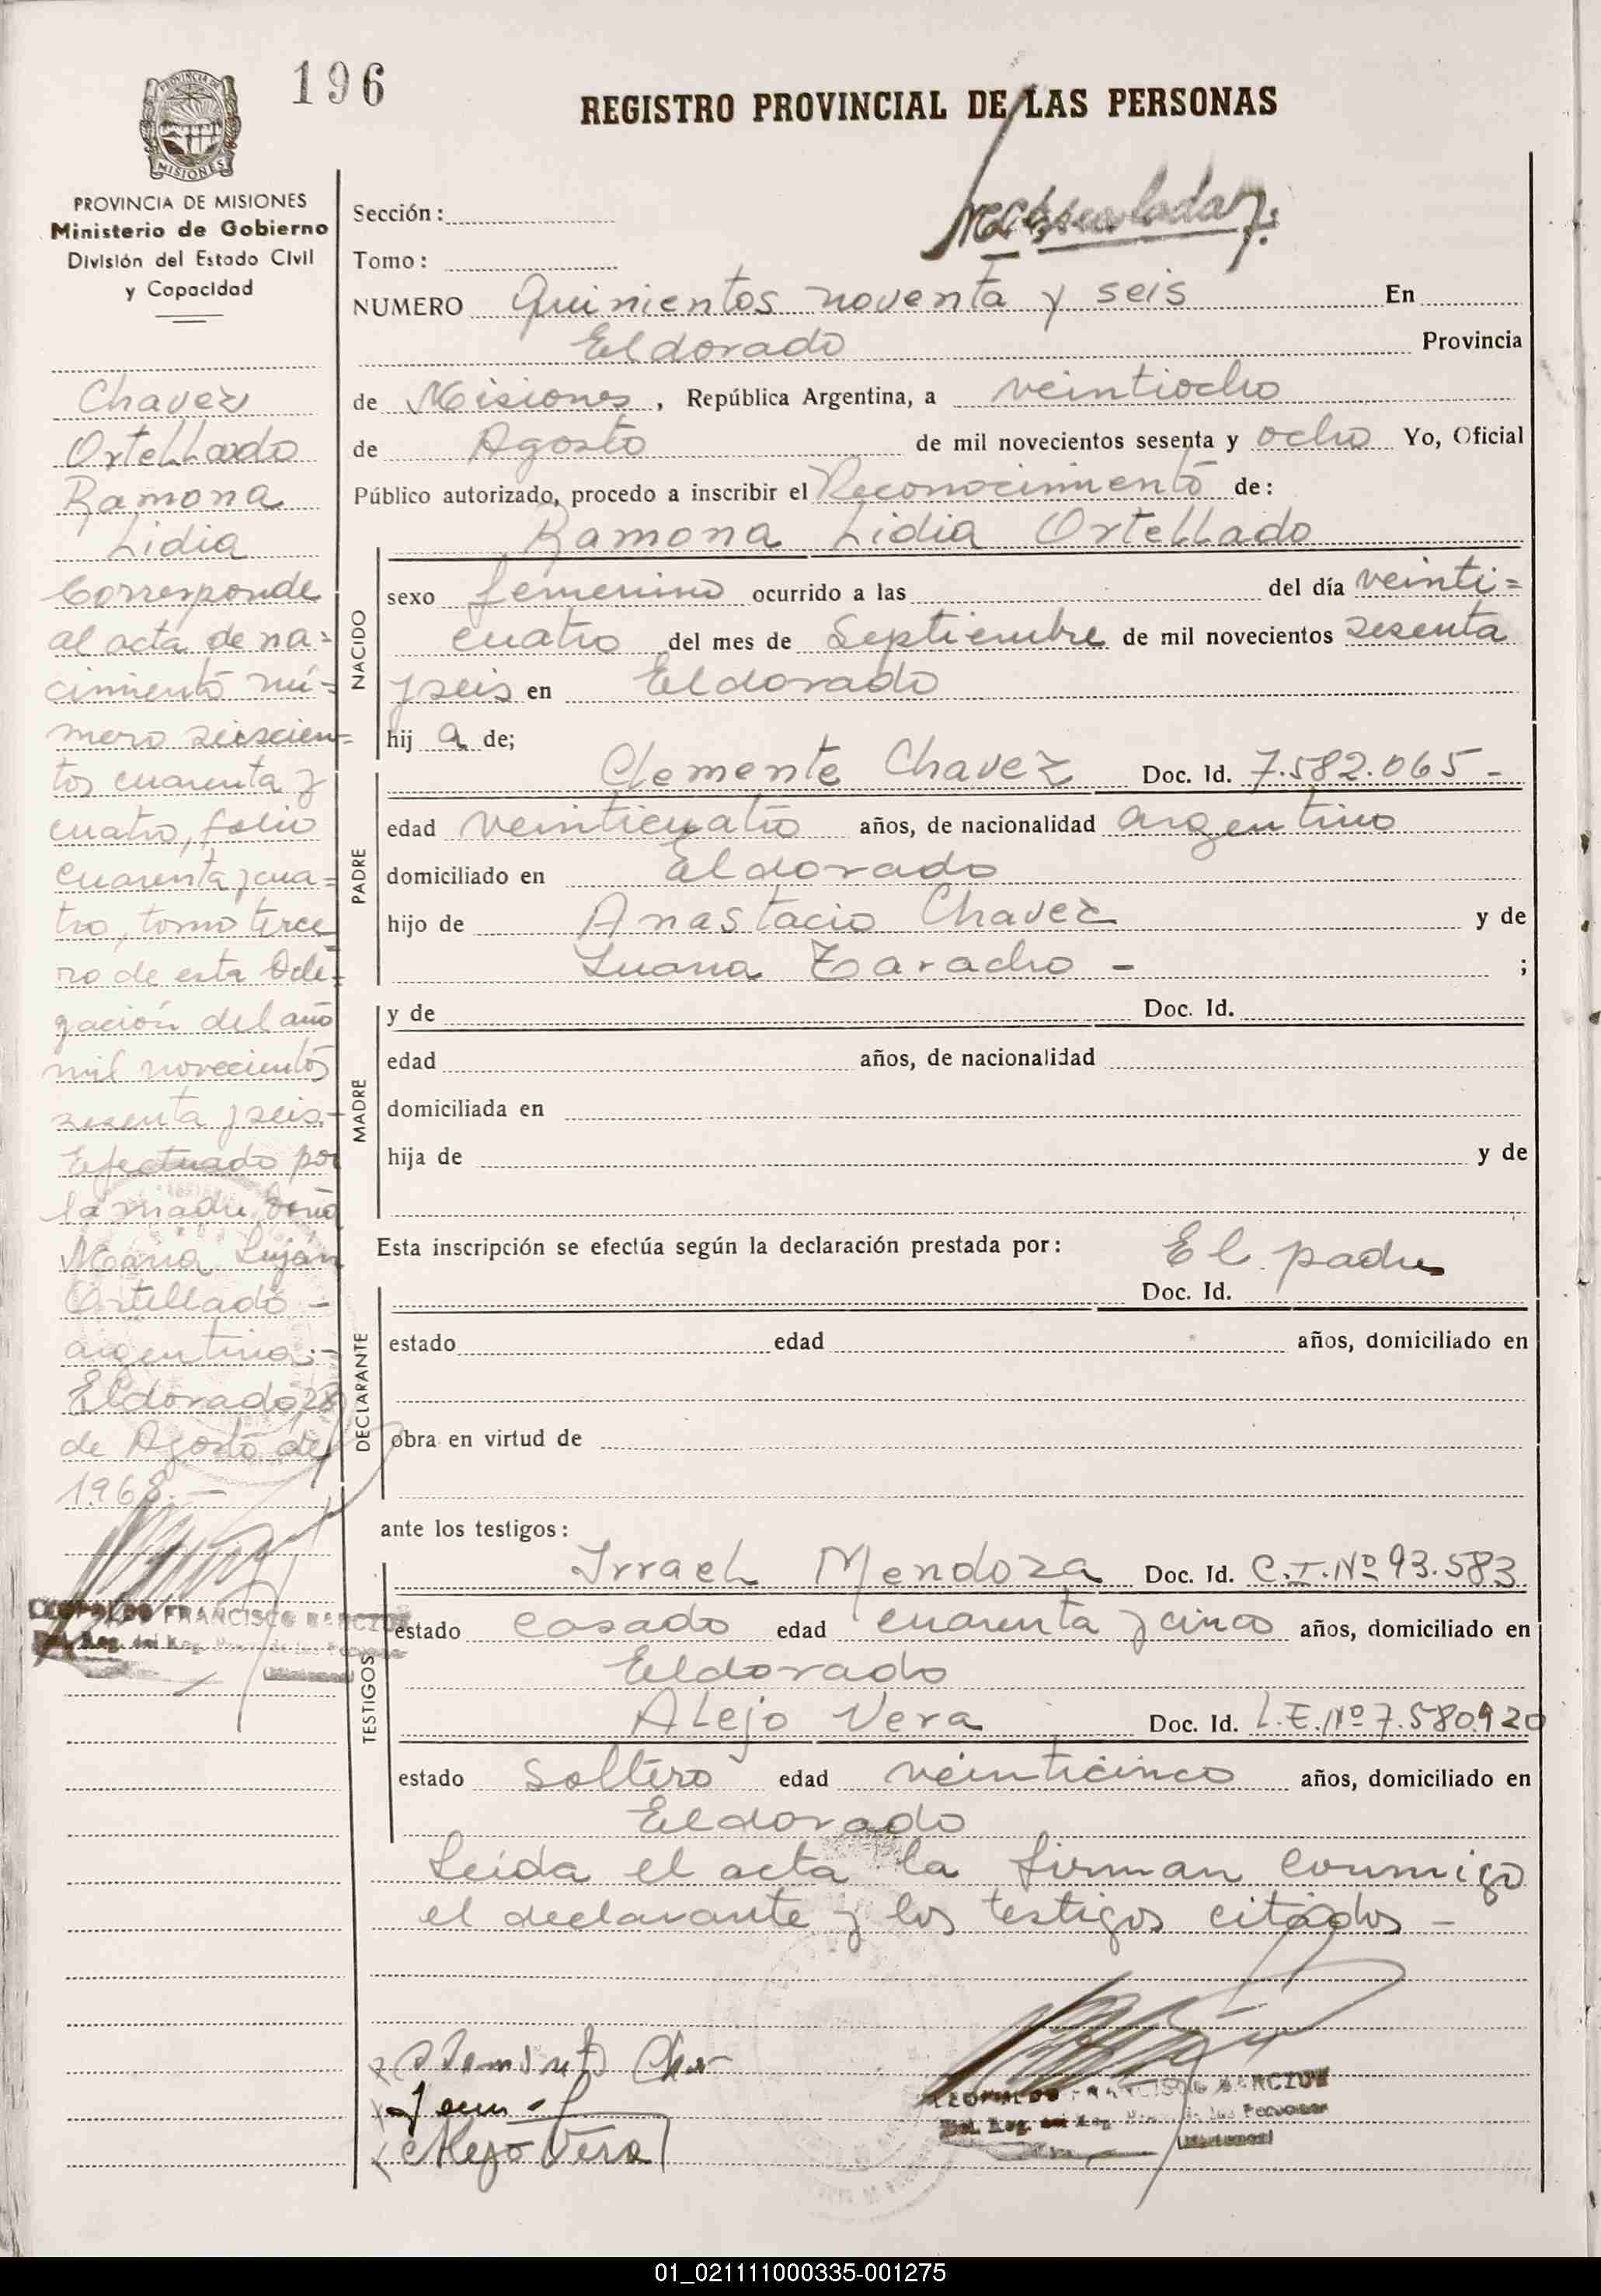 196
REGISTRO PROVINCIAL DE LAS PERSONAS
PROVINCIA DE
MISIONES
PROVINCIA DE MISIONES
Ministerio de Gobierno
División del Estado Civil
y Capacidad
Chavez
Ortellado
Ramona
Lidia
Corresponde
al acta de na=
cimiento nú=
mero seiscien=
tos cuarenta y
cuatro, folio
cuarenta y cua=
tro, tomo terce
ro de esta Dele=
gación del año
mil novecientos
sesenta y seis.
Efectuado por
la madre Doña
Maria Lujan
Ortellado -
argentina.-
Eldorado, 28
de Agosto de
1968.-
LEOPOLDO FRANCISCO
Sección:
Tomo:
NUMERO Quinientos noventa y seis En
Eldorado Provincia
de Misiones, República Argentina, a veintiocho
de Agosto de mil novecientos sesenta y ocho Yo, Oficial
Público autorizado, procedo a inscribir el Reconocimiento de:
Ramona Lidia Ortellado
NACIDO
sexo femenino ocurrido a las del día veinti=
cuatro del mes de Septiembre de mil novecientos sesenta
y seis en Eldorado
hij a de;
PADRE
Clemente Chavez Doc. Id. 7.582.065 -
edad veinticuatro años, de nacionalidad argentino
domiciliado en Eldorado
hijo de Anastacio Chavez y de
Luana Taracho - ;
MADRE
y de Doc. Id.
edad años, de nacionalidad
domiciliada en
hija de y de
Esta inscripción se efectúa según la declaración prestada por: El padre
DECLARANTE
Doc. Id.
estado edad años, domiciliado en
obra en virtud de
ante los testigos:
TESTIGOS
Irrael Mendoza Doc. Id. C.I.Nº 93.583
estado casado edad cuarenta y cinco años, domiciliado en
Eldorado
Alejo Vera Doc. Id. L.E.Nº 7.580.920
estado soltero edad veinticinco años, domiciliado en
Eldorado
Leida el acta la firman conmigo
el declarante y los testigos citados -
Alejo Vera
LEOPOLDO FRANCISCO
01_021111000335-001275